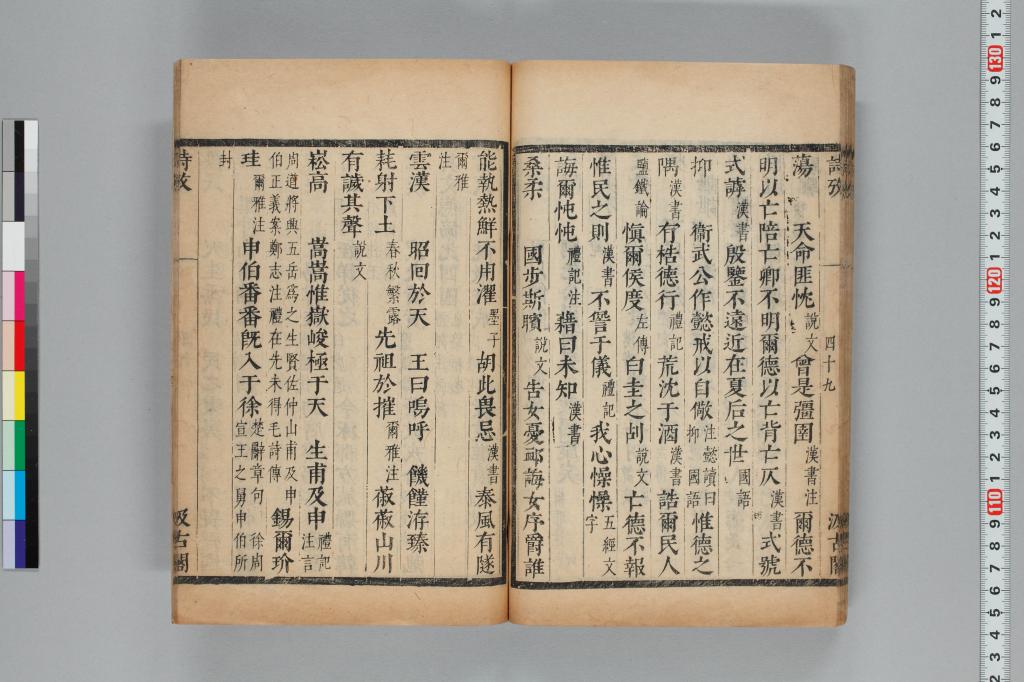 詩攷
四十九
汲古閣
蕩 天命匪忱說文曾是彊圉漢書注爾德不
明以亡陪亡卿不明爾德以亡背亡仄漢書式號
式謼漢書殷鑒不遠近在夏后之世國語
抑 衞武公作懿戒以自儆注懿讀曰抑國語惟德之
隅漢書有梏德行禮記荒沈于酒漢書誥爾民人
鹽鐵論愼爾侯度左傳白圭之㓠說文亡德不報
惟民之則漢書不諐于儀禮記我心懆懆五經文字
誨爾忳忳禮記注藉曰未知漢書
桑柔 國步斯矉說文告女憂卹誨女序爵誰
能執熱鮮不用濯墨子胡此畏忌漢書泰風有隧
爾雅注
雲漢 昭回於天 王曰嗚呼 饑饉洊臻
耗射下土春秋繁露先祖於摧爾雅注菽菽山川
有諴其聲說文
崧高 嵩嵩惟嶽峻極于天 生甫及申禮記注言
周道將興五岳爲之生賢佐仲山甫及申伯正義案鄭志注禮在先未得毛詩傳錫爾玠
珪爾雅注申伯番番旣入于徐楚辭章句徐周宣王之舅申伯所
封
詩攷
汲古閣
130
120
110